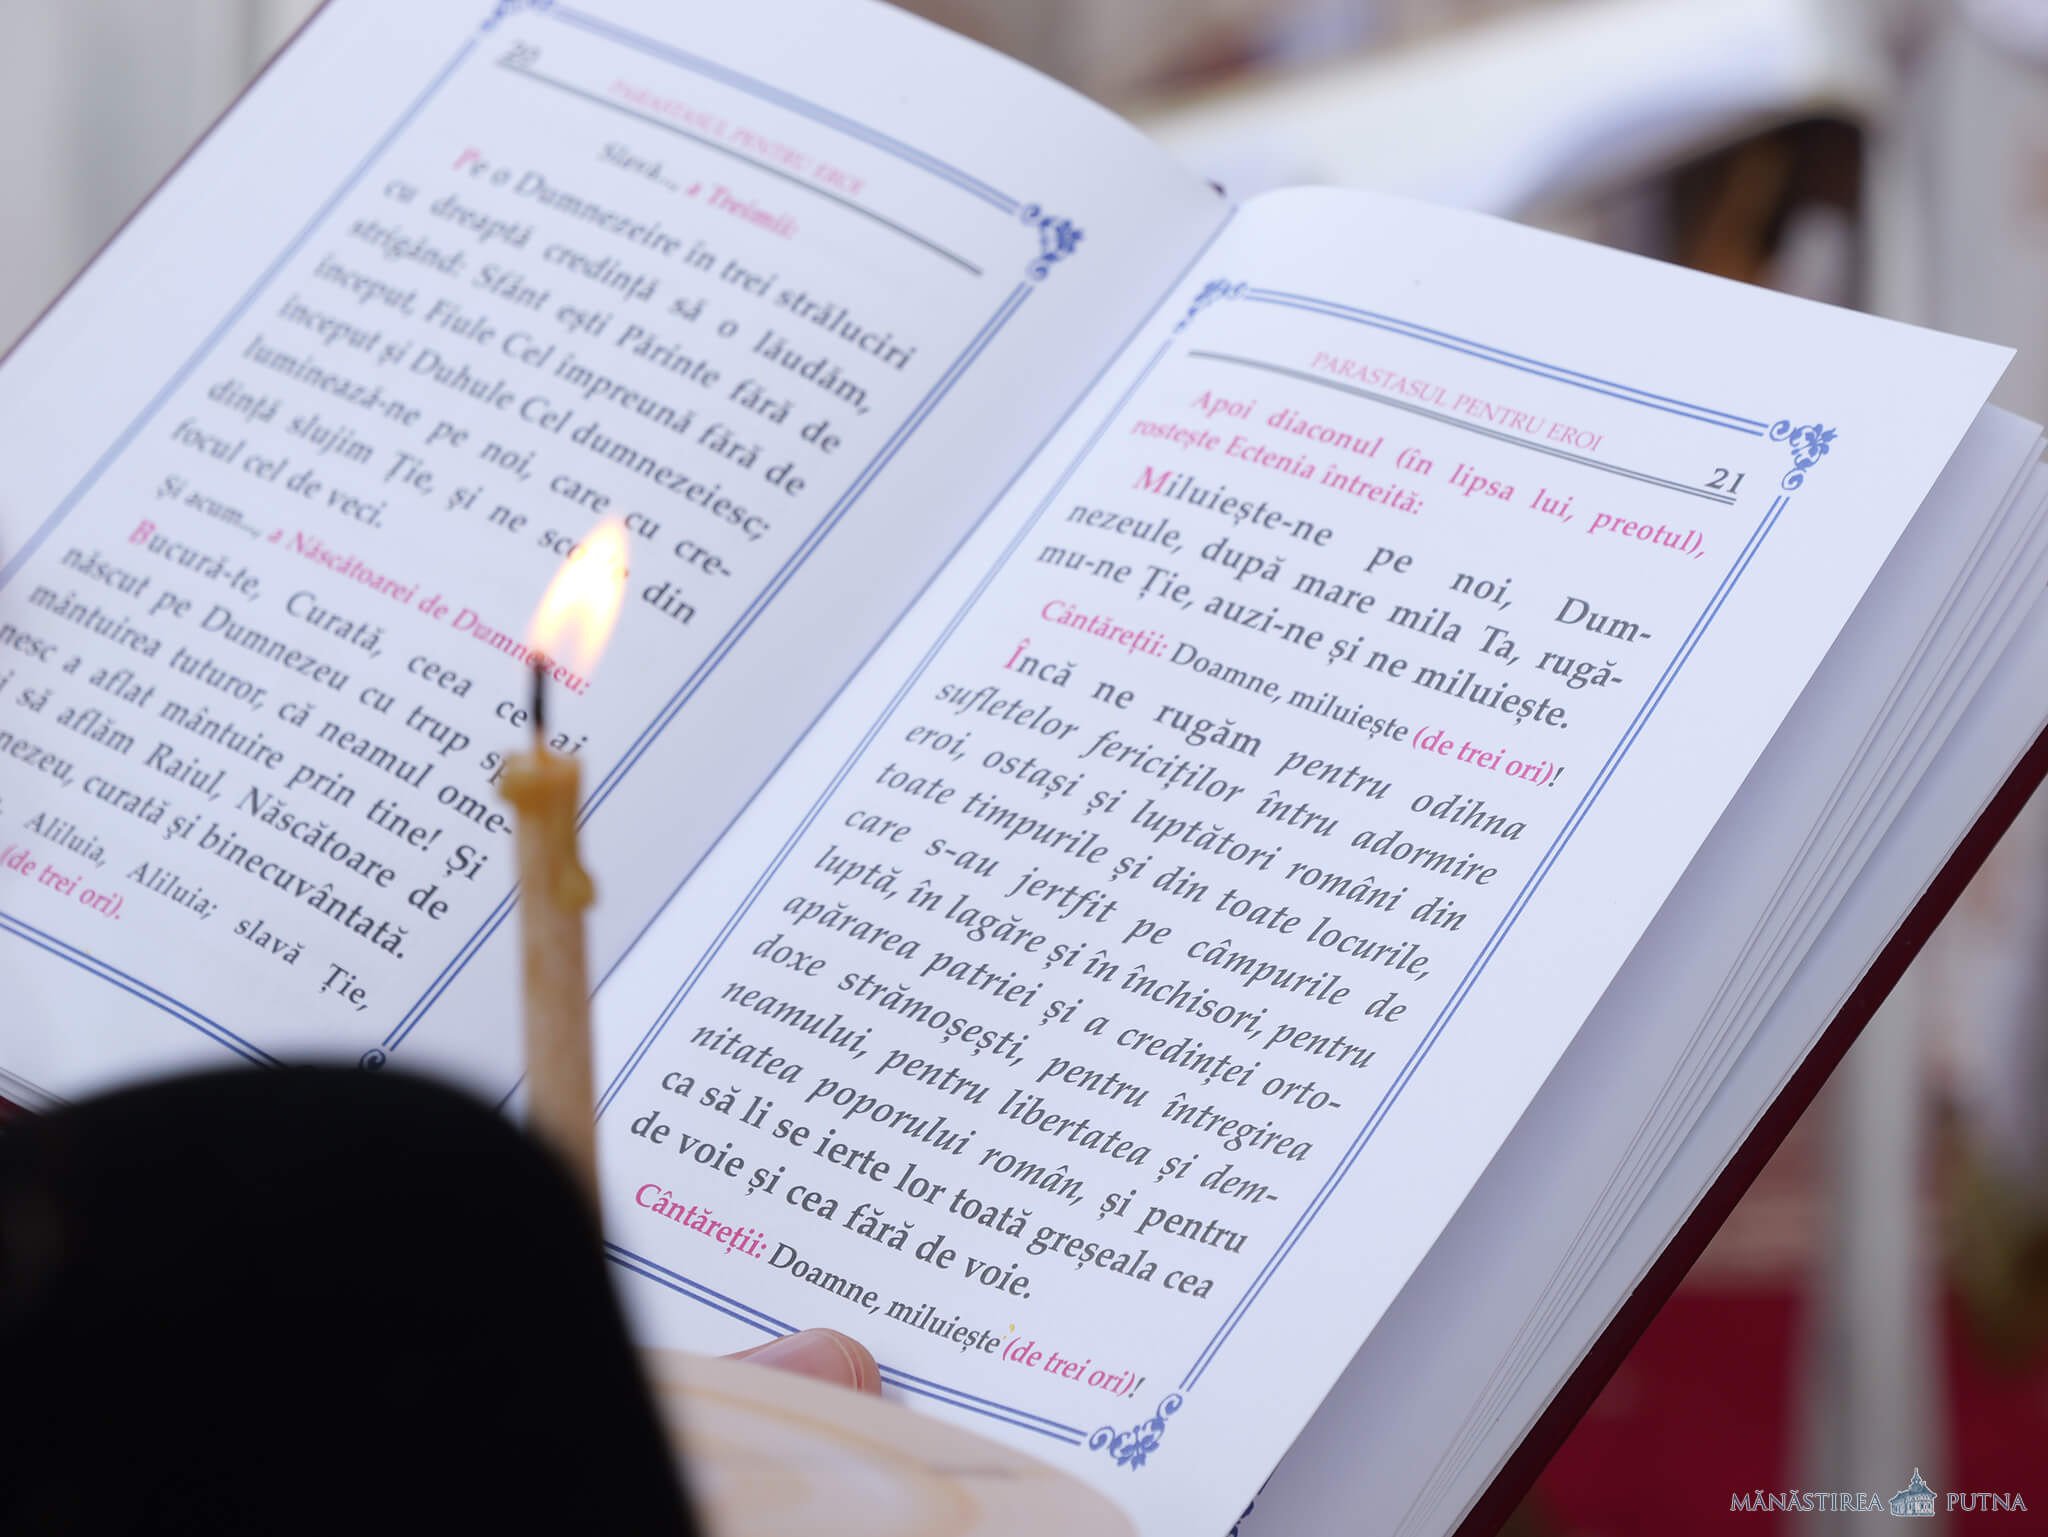 20
PARASTASUL PENTRU EROI
Slavă..., a Treimii:
Pe o Dumnezeire în trei străluciri
cu dreaptă credință să o lăudăm,
strigând: Sfânt ești Părinte fără de
început, Fiule Cel împreună fără de
început și Duhule Cel dumnezeiesc;
luminează-ne pe noi, care cu cre-
dință slujim Ție, și ne din
focul cel de veci.
Și acum..., a Născătoarei de Dumnezeu:
Bucură-te, Curată, ceea ce ai
născut pe Dumnezeu cu trup
mântuirea tuturor, că neamul ome-
nesc a aflat mântuire prin tine! Și
să aflăm Raiul, Născătoare de
nezeu, curată și binecuvântată.
Aliluia, Aliluia; slavă Ție,
(de trei ori).
PARASTASUL PENTRU EROI
21
Apoi diaconul (în lipsa lui, preotul),
rostește Ectenia întreită:
Miluiește-ne pe noi, Dum-
nezeule, după mare mila Ta, rugă-
mu-ne Ție, auzi-ne și ne miluiește.
Cântăreții: Doamne, miluiește (de trei ori)!
Încă ne rugăm pentru odihna
sufletelor fericiților întru adormire
eroi, ostași și luptători români din
toate timpurile și din toate locurile,
care s-au jertfit pe câmpurile de
luptă, în lagăre și în închisori, pentru
apărarea patriei și a credinței orto-
doxe strămoșești, pentru întregirea
neamului, pentru libertatea și dem-
nitatea poporului român, și pentru
ca să li se ierte lor toată greșeala cea
de voie și cea fără de voie.
Cântăreții: Doamne, miluiește (de trei ori)!
MĂNĂSTIREA PUTNA